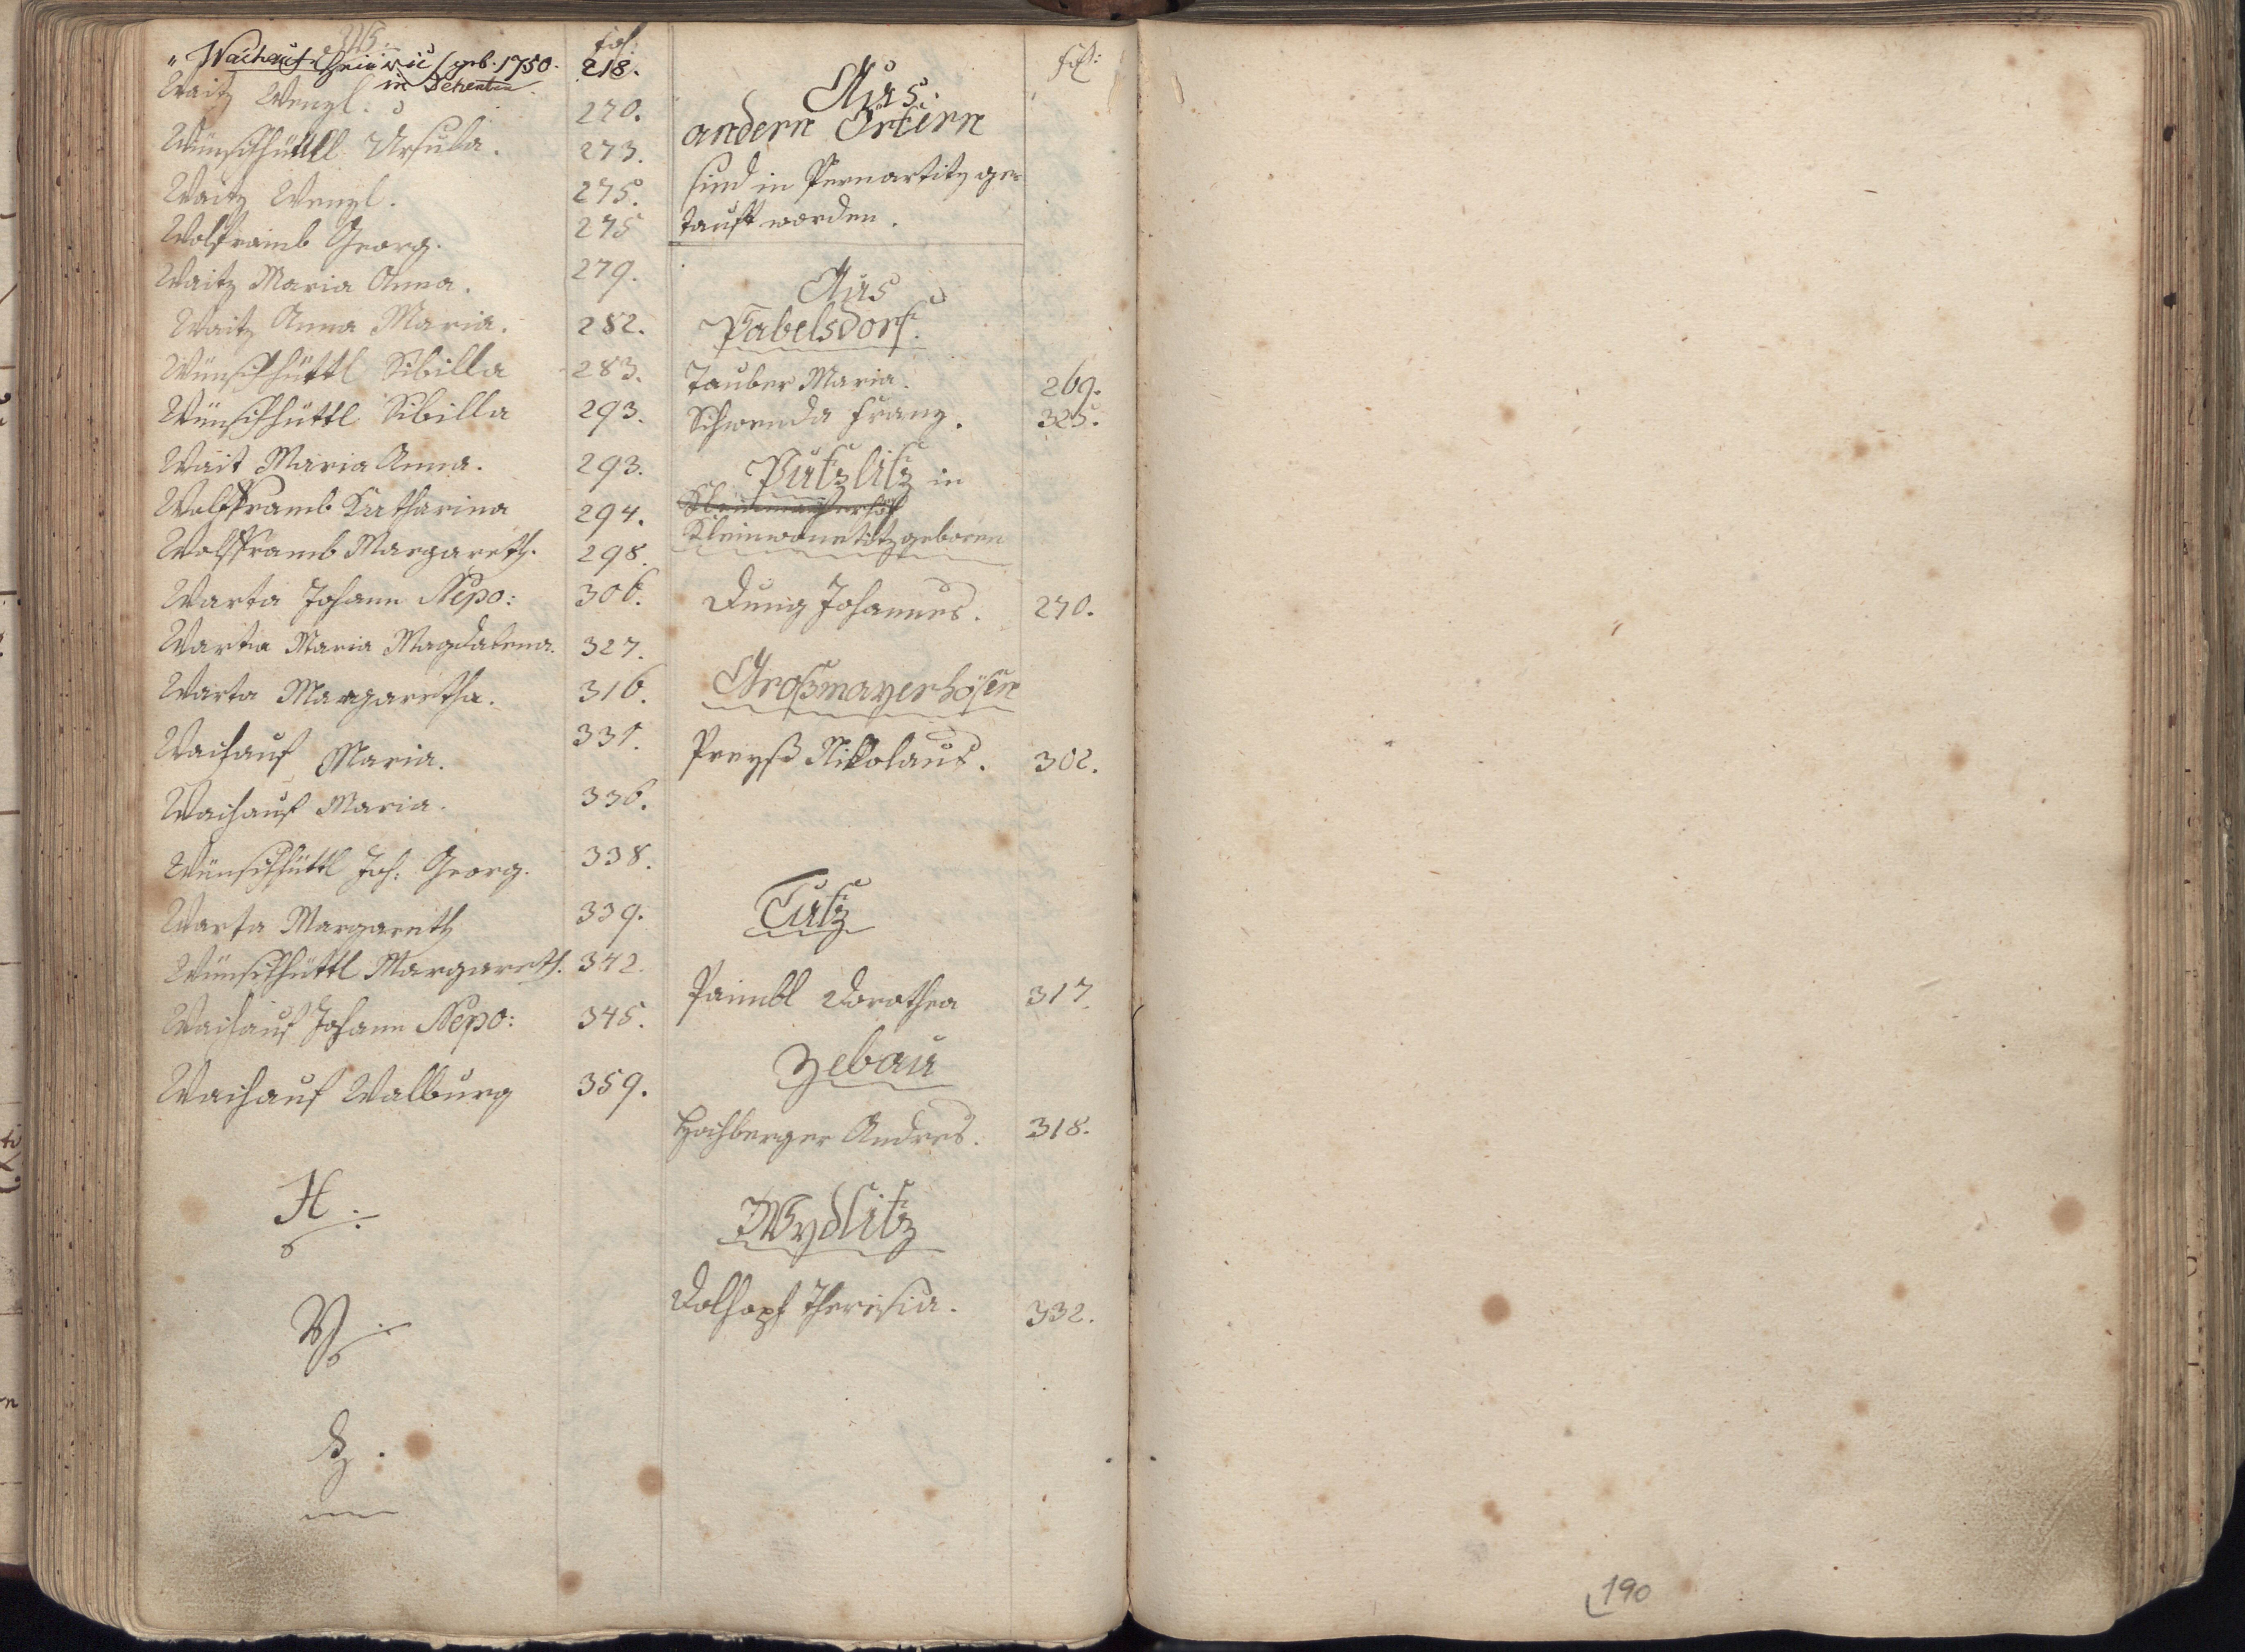 W. fol:
" Waichauf Heinric (geb. 1750. 218.
in Dehenten
Waitz Wenzl. 270.
Wünschhüttl Ursula. 273.
Waitz Wenzl. 275.
Wolframb Georg. 275
Waitz Maria Anna. 279.
Waitz Anna Maria. 282.
Wünschhüttl Sibilla 283.
Wünschhüttl Sibilla 293.
Wait Maria Anna. 293.
Wolfframb Katharina 294.
Wolfframb Margareth. 298.
Warta Johann Nepo: 306.
Warta Maria Magdalena. 327.
Warta Margaretha. 316.
Waichauf Maria. 331.
Waichauf Maria. 336.
Wünschhüttl Joh: Georg. 338.
Warta Margareth 339.
Wünschhüttl Margareth. 342.
Waichauf Johann Nepo: 345.
Waichauf Walburg 359.
X.
Y.
Z.
fol:
Aus
andern Örtern
sind in Pernartitz ge-
tauft worden.
Aus
Pabelsdorf.
Tauber Maria. 269.
Schwenda Franz. 325.
Putzlitz in
Kleinmaÿerhöf
Kleinwonetitz geboren
Dung Johannes. 270.
Großmayerhöfen
Preyß Nikolaus. 302.
Tutz
Paimbl Dorothea 317.
Zebau
Hochberger Andres. 318.
Wydlitz
Dolhopf Theresia. 332.
190